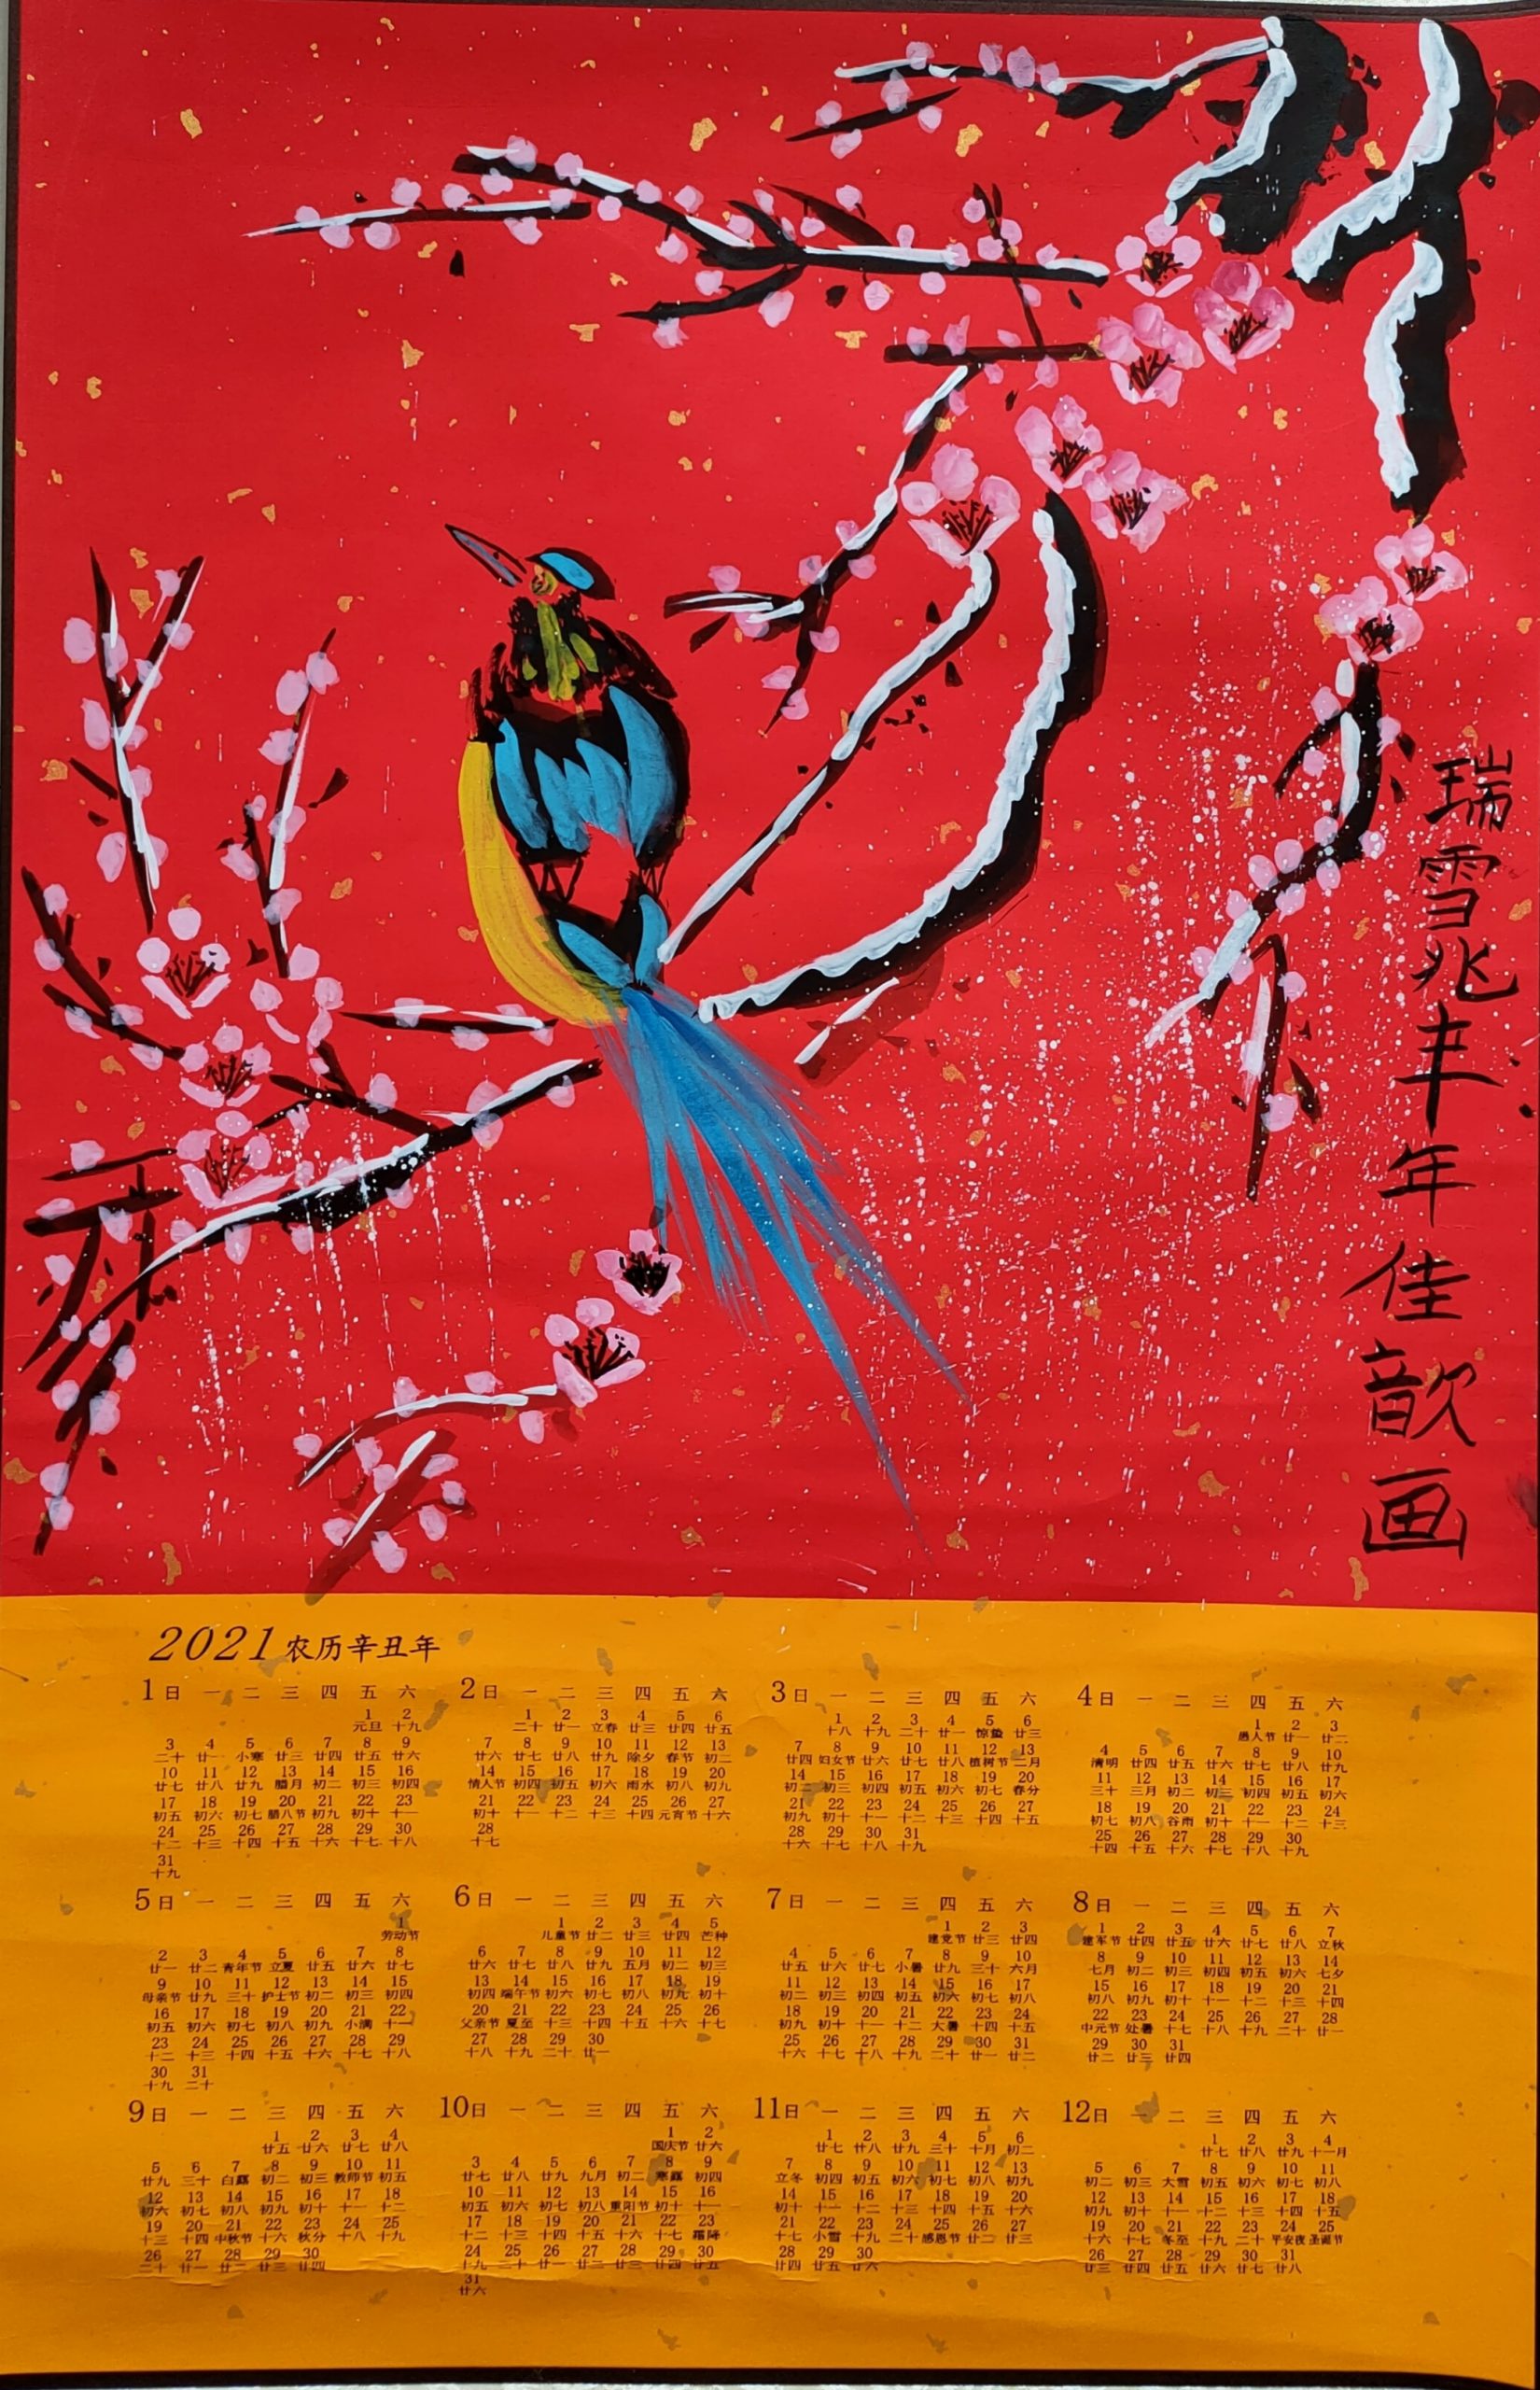 瑞雪兆丰年佳歆画
2021 农历辛丑年
1日 一 二 三 四 五 六
1 2
元旦 十九
3 4 5 6 7 8 9
二十 廿一 小寒 廿三 廿四 廿五 廿六
10 11 12 13 14 15 16
廿七 廿八 廿九 腊月 初二 初三 初四
17 18 19 20 21 22 23
初五 初六 初七 腊八节 初九 初十 十一
24 25 26 27 28 29 30
十二 十三 十四 十五 十六 十七 十八
31
十九
2日 一 二 三 四 五 六
1 2 3 4 5 6
二十 廿一 立春 廿三 廿四 廿五
7 8 9 10 11 12 13
廿六 廿七 廿八 廿九 除夕 春节 初二
14 15 16 17 18 19 20
情人节 初四 初五 初六 雨水 初八 初九
21 22 23 24 25 26 27
初十 十一 十二 十三 十四 元宵节 十六
28
十七
3日 一 二 三 四 五 六
1 2 3 4 5 6
十八 十九 二十 廿一 惊蛰 廿三
7 8 9 10 11 12 13
廿四 妇女节 廿六 廿七 廿八 植树节 二月
14 15 16 17 18 19 20
初二 初三 初四 初五 初六 初七 春分
21 22 23 24 25 26 27
初九 初十 十一 十二 十三 十四 十五
28 29 30 31
十六 十七 十八 十九
4日 一 二 三 四 五 六
1 2 3
愚人节 廿一 廿二
4 5 6 7 8 9 10
清明 廿四 廿五 廿六 廿七 廿八 廿九
11 12 13 14 15 16 17
三十 三月 初二 初三 初四 初五 初六
18 19 20 21 22 23 24
初七 初八 谷雨 初十 十一 十二 十三
25 26 27 28 29 30
十四 十五 十六 十七 十八 十九
5日 一 二 三 四 五 六
1
劳动节
2 3 4 5 6 7 8
廿一 廿二 青年节 立夏 廿五 廿六 廿七
9 10 11 12 13 14 15
母亲节 廿九 三十 护士节 初二 初三 初四
16 17 18 19 20 21 22
初五 初六 初七 初八 初九 小满 十一
23 24 25 26 27 28 29
十二 十三 十四 十五 十六 十七 十八
30 31
十九 二十
6日 一 二 三 四 五 六
1 2 3 4 5
儿童节 廿二 廿三 廿四 芒种
6 7 8 9 10 11 12
廿六 廿七 廿八 廿九 五月 初二 初三
13 14 15 16 17 18 19
初四 端午节 初六 初七 初八 初九 初十
20 21 22 23 24 25 26
父亲节 夏至 十三 十四 十五 十六 十七
27 28 29 30
十八 十九 二十 廿一
7日 一 二 三 四 五 六
1 2 3
建党节 廿三 廿四
4 5 6 7 8 9 10
廿五 廿六 廿七 小暑 廿九 三十 六月
11 12 13 14 15 16 17
初二 初三 初四 初五 初六 初七 初八
18 19 20 21 22 23 24
初九 初十 十一 十二 大暑 十四 十五
25 26 27 28 29 30 31
十六 十七 十八 十九 二十 廿一 廿二
8日 一 二 三 四 五 六
1 2 3 4 5 6 7
建军节 廿四 廿五 廿六 廿七 廿八 立秋
8 9 10 11 12 13 14
七月 初二 初三 初四 初五 初六 七夕
15 16 17 18 19 20 21
初八 初九 初十 十一 十二 十三 十四
22 23 24 25 26 27 28
中元节 处暑 十七 十八 十九 二十 廿一
29 30 31
廿二 廿三 廿四
9日 一 二 三 四 五 六
1 2 3 4
廿五 廿六 廿七 廿八
5 6 7 8 9 10 11
廿九 三十 白露 初二 初三 教师节 初五
12 13 14 15 16 17 18
初六 初七 初八 初九 初十 十一 十二
19 20 21 22 23 24 25
十三 十四 中秋节 十六 秋分 十八 十九
26 27 28 29 30
二十 廿一 廿二 廿三 廿四
10日 一 二 三 四 五 六
1 2
国庆节 廿六
3 4 5 6 7 8 9
廿七 廿八 廿九 九月 初二 寒露 初四
10 11 12 13 14 15 16
初五 初六 初七 初八 重阳节 初十 十一
17 18 19 20 21 22 23
十二 十三 十四 十五 十六 十七 霜降
24 25 26 27 28 29 30
十九 二十 廿一 廿二 廿三 廿四 廿五
31
廿六
11日 一 二 三 四 五 六
1 2 3 4 5 6
廿七 廿八 廿九 三十 十月 初二
7 8 9 10 11 12 13
立冬 初四 初五 初六 初七 初八 初九
14 15 16 17 18 19 20
初十 十一 十二 十三 十四 十五 十六
21 22 23 24 25 26 27
十七 小雪 十九 二十 感恩节 廿二 廿三
28 29 30
廿四 廿五 廿六
12日 一 二 三 四 五 六
1 2 3 4
廿七 廿八 廿九 十一月
5 6 7 8 9 10 11
初二 初三 大雪 初五 初六 初七 初八
12 13 14 15 16 17 18
初九 初十 十一 十二 十三 十四 十五
19 20 21 22 23 24 25
十六 十七 冬至 十九 二十 平安夜 圣诞节
26 27 28 29 30 31
廿三 廿四 廿五 廿六 廿七 廿八